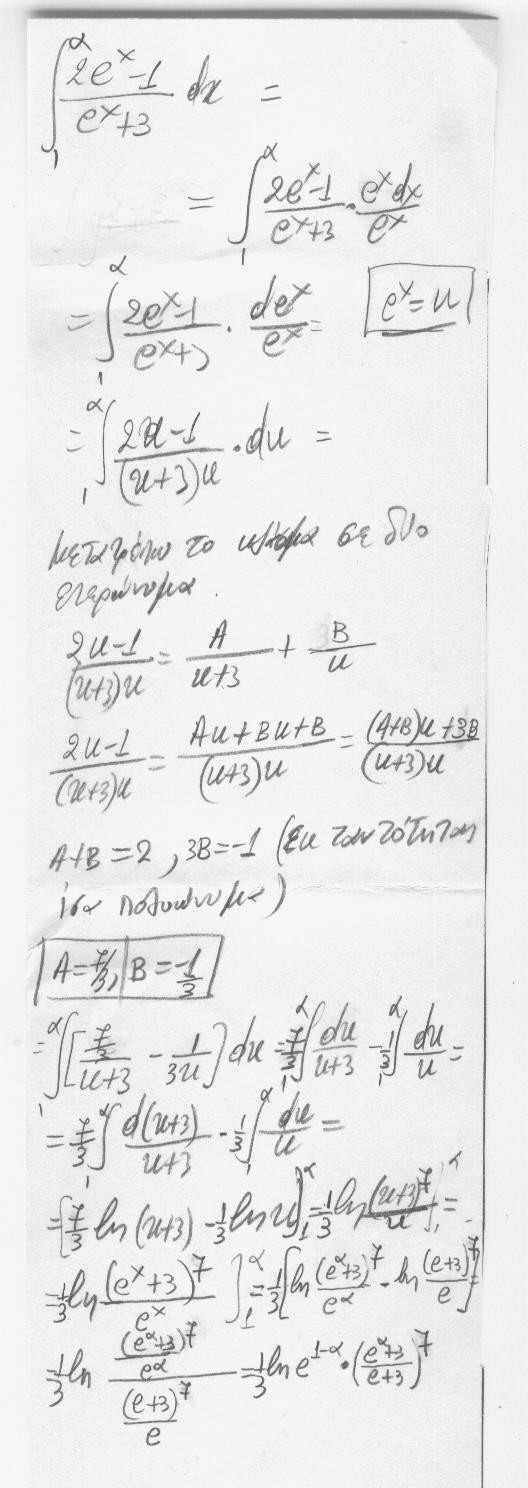 ∫₁^α (2eˣ-1)/(eˣ+3) dx =
= ∫₁^α (2eˣ-1)/(eˣ+3) · (eˣdx)/eˣ
= ∫₁^α (2eˣ-1)/(eˣ+3) · deˣ/eˣ = eˣ=u
= ∫₁^α (2u-1)/((u+3)u) · du =
μετατρέπω το κλάσμα σε δυο
ετερώνυμα.
(2u-1)/((u+3)u) = A/(u+3) + B/u
(2u-1)/((u+3)u) = (Au+Bu+B)/((u+3)u) = ((A+B)u+3B)/((u+3)u)
A+B=2, 3B=-1 (εκ ταυτότητας
ίσα πολυώνυμα)
A=7/3, B=-1/3
= ∫₁^α [(7/3)/(u+3) - 1/(3u)] du = 7/3 ∫₁^α du/(u+3) - 1/3 ∫₁^α du/u =
= 7/3 ∫₁^α d(u+3)/(u+3) - 1/3 ∫₁^α du/u =
= [7/3 ln(u+3) - 1/3 ln u]₁^α = 1/3 ln (u+3)⁷/u ]₁^α =
= 1/3 ln (eˣ+3)⁷/eˣ ]₁^α = 1/3 [ln (e^α+3)⁷/e^α - ln (e+3)⁷/e] =
= 1/3 ln ((e^α+3)⁷/e^α)/((e+3)⁷/e) = 1/3 ln e^(1-α) · ((e^α+3)/(e+3))⁷